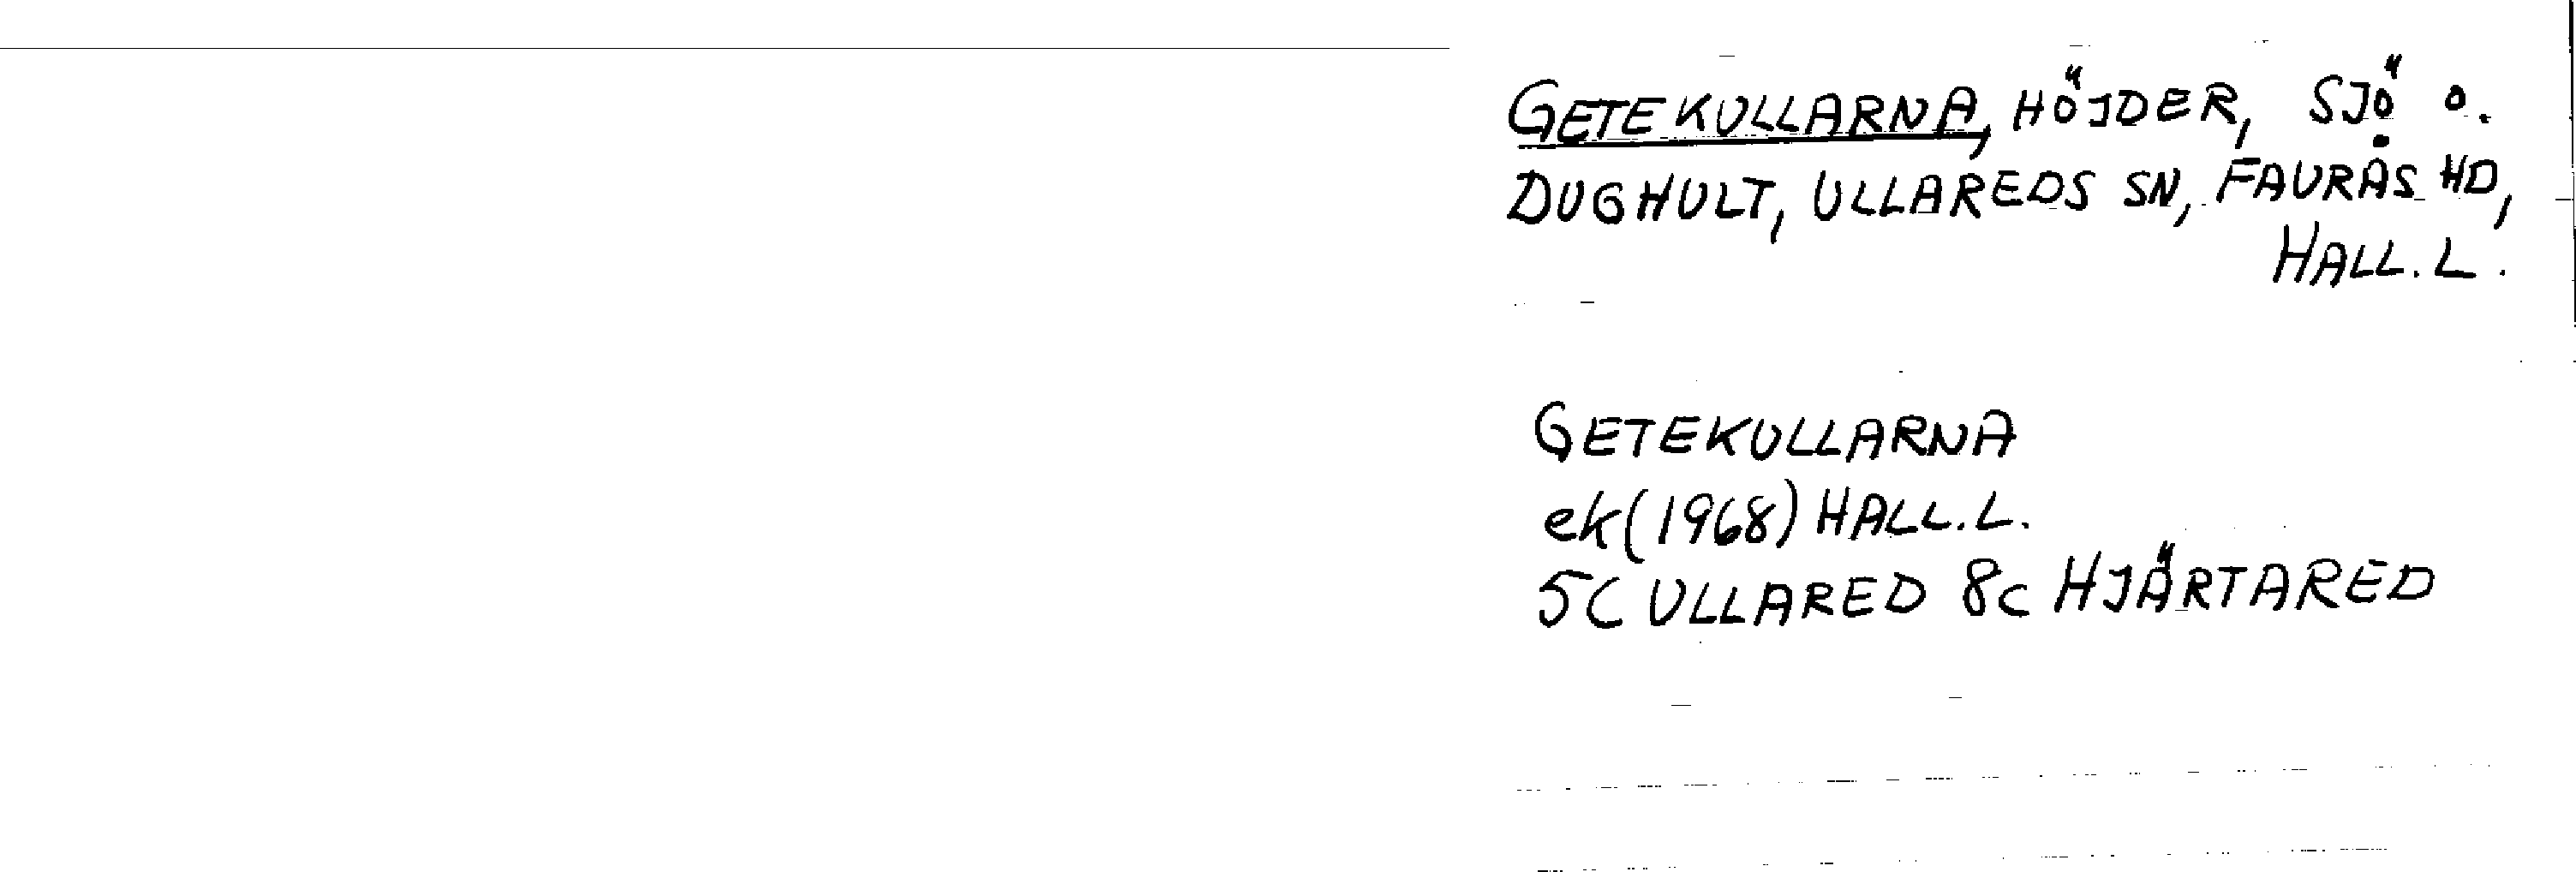 GETEKULLARNA, HÖJDER, SJÖ O.
DUGHULT, ULLAREDS SN, FAURÅS HD,
HALL. L.
GETEKULLARNA
ek (1968) HALL. L.
5C ULLARED 8c HJÄRTARED